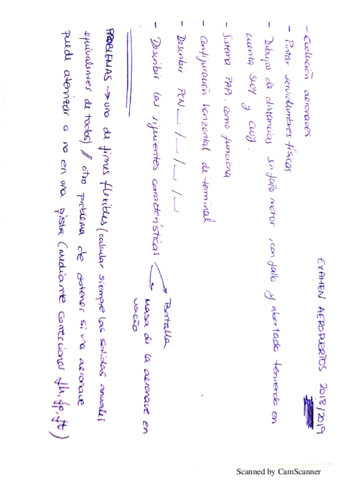 EXAMEN AEROPUERTOS 2018/2019
- Evolución aeronaves
- Pintar servidumbres físicas
- Dibujos de distancias sin fallo motor, con fallo y abortado teniendo en
cuenta SWY y CWY.
- Sistema PAPI. como funciona
- Configuración horizontal de terminal
- Describir PCN __/__/__/__
- Describir las siguientes características → Pantalla
→ Masa de la aeronave en
vacío
PROBLEMAS → uso de firmes flexibles (calcular siempre las salidas anuales
equivalentes de todos) // otro problema de obtener si una aeronave
puede aterrizar o no en una pista (mediante correcciones fh, fp, ft)
Scanned by CamScanner